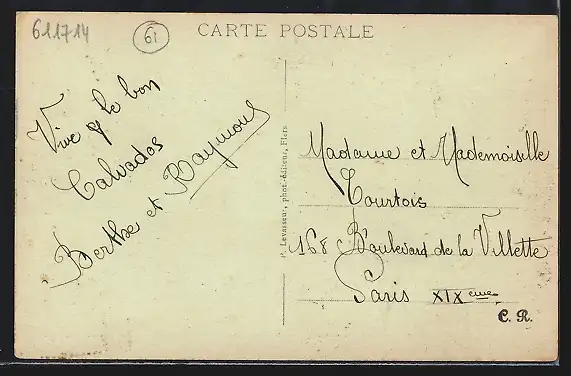 611714
61
CARTE POSTALE
Vive le bon
Calvados
Berthe et Raymond
P. Levasseur, phot.-éditeur, Flers
Madame et Mademoiselle
Courtois
168 Boulevard de la Villette
Paris XIXème
C. R.